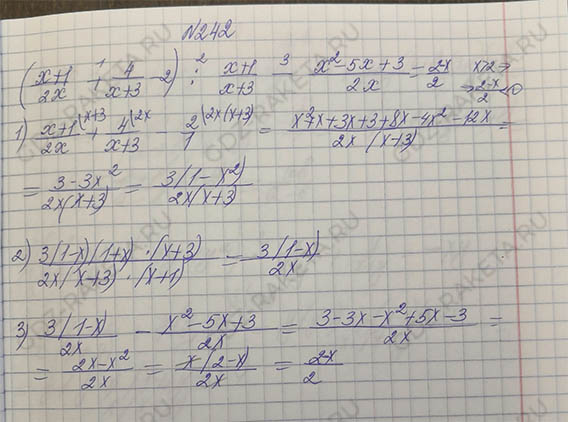 N242
((x+1)/2x + 4/(x+3) - 2) : (x+1)/(x+3) - (x²-5x+3)/2x = (2-x)/2   x>2 ⇒
⇒ (2-x)/2 < 0
1) (x+1)/2x |x+3 + 4/(x+3) |2x - 2/1 |2x(x+3) = (x²+x+3x+3+8x-4x²-12x)/(2x(x+3)) =
= (3-3x²)/(2x(x+3)) = 3(1-x²)/(2x(x+3))
2) (3(1-x)(1+x)·(x+3))/(2x(x+3)·(x+1)) = 3(1-x)/2x
3) 3(1-x)/2x - (x²-5x+3)/2x = (3-3x-x²+5x-3)/2x =
= (2x-x²)/2x = x(2-x)/2x = (2-x)/2
GDZ-RAKETA.RU